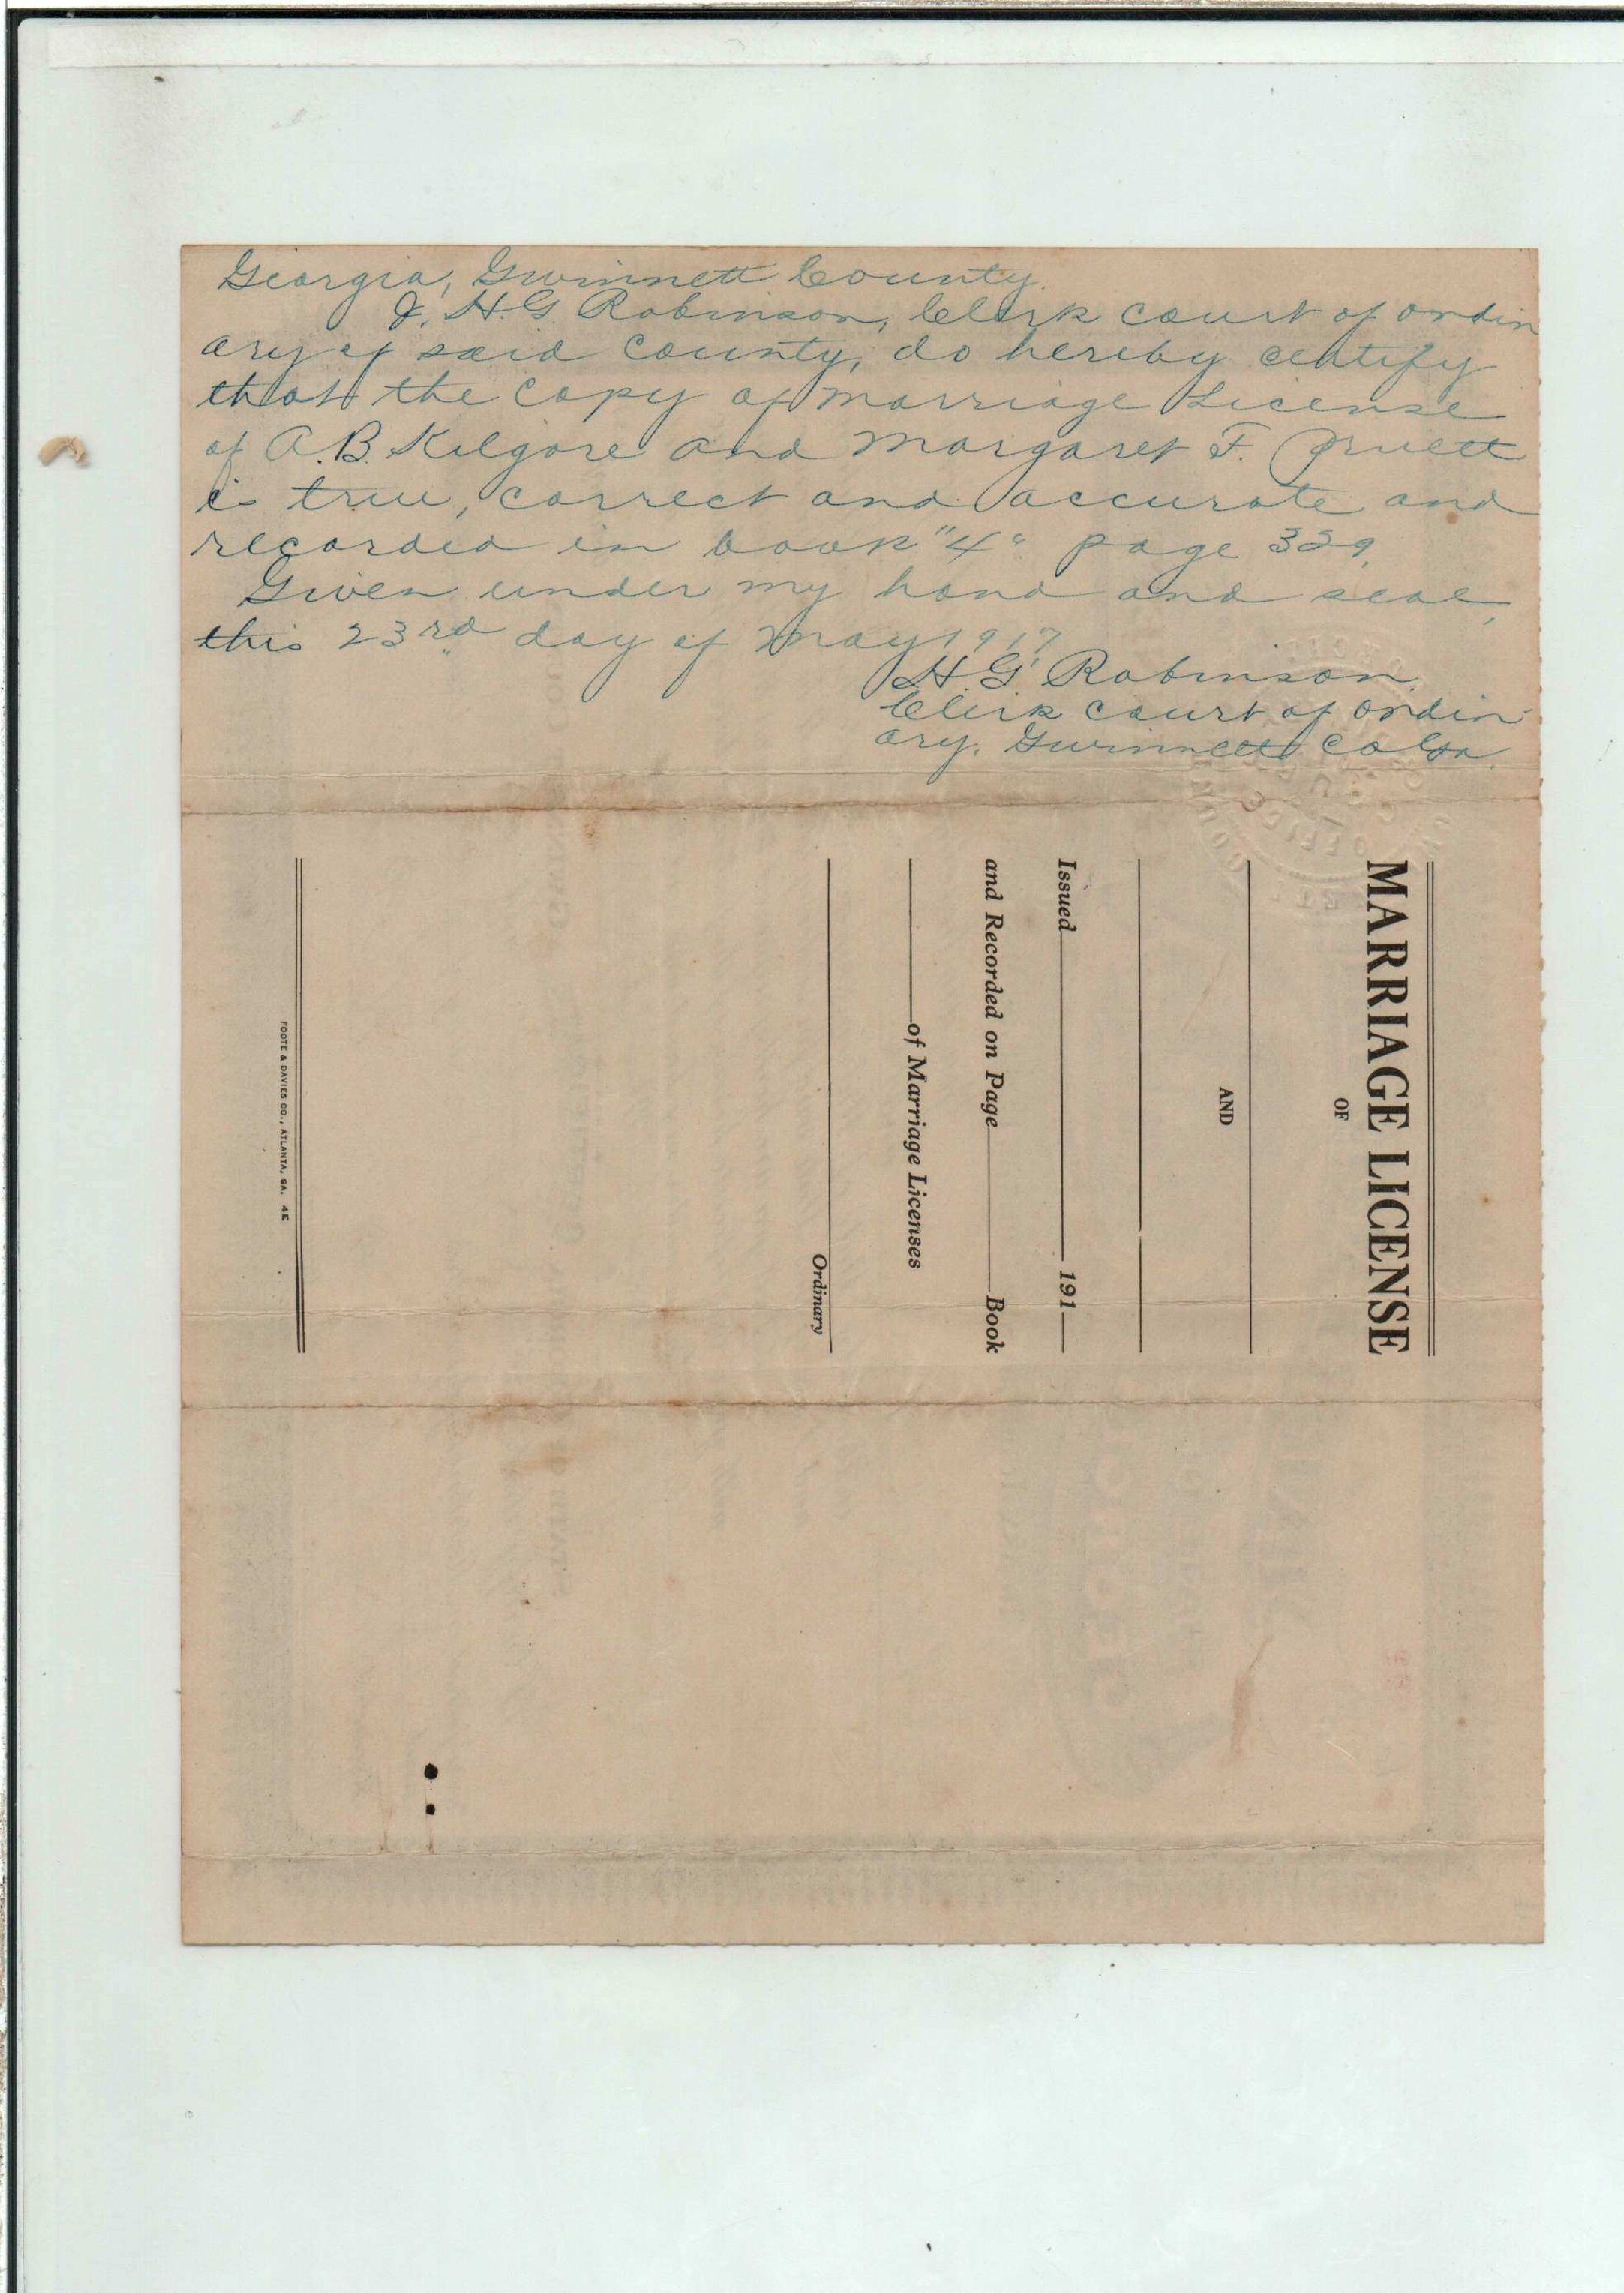 Georgia, Gwinnett County.
I, H.G. Robinson, Clerk court of ordin
ary of said County, do hereby certify
that the copy of Marriage License
of A.B. Kilgore and Margaret F. Pruett
is true, correct and accurate and
recorded in book "4" page 329.
Given under my hand and seal,
this 23rd day of May 1917
H.G. Robinson.
Clerk court of ordin-
ary. Gwinnett Co Ga.
MARRIAGE LICENSE
OF
AND
Issued 191
and Recorded on Page Book
of Marriage Licenses
Ordinary
FOOTE & DAVIES CO., ATLANTA, GA. 4E